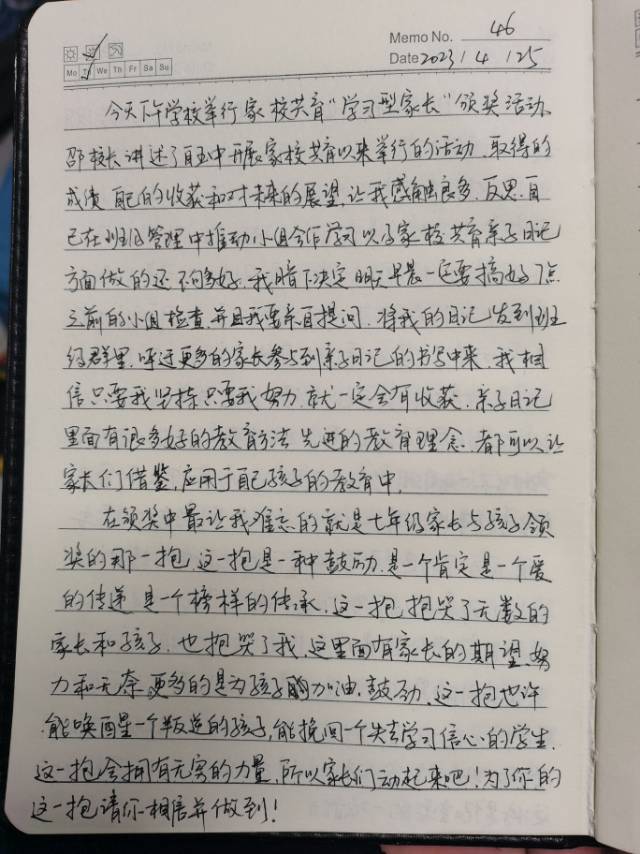 Memo No. 46
Mo Tu We Th Fr Sa Su
Date 2023 / 4 / 25
今天下午学校举行家校共育“学习型家长”颁奖活动、
邵校长讲述了自玉中开展家校共育以来举行的活动、取得的
成绩、自己的收获和对未来的展望,让我感触良多.反思自
己在班级管理中推动小组合作学习以及家校共育亲子日记
方面做的还不够好.我暗下决定明天早晨一定要搞好7点
之前的小组检查,并且我要亲自提问.将我的日记发到班
级群里,呼吁更多的家长参与到亲子日记的书写中来.我相
信只要我坚持只要我努力,就一定会有收获.亲子日记
里面有很多好的教育方法 先进的教育理念.都可以让
家长们借鉴,应用于自己孩子的教育中.
在颁奖中最让我难忘的就是七年级家长与孩子领
奖的那一抱,这一抱是一种鼓励.是一个肯定是一个爱
的传递 是一个榜样的传承.这一抱,抱哭了无数的
家长和孩子.也抱哭了我.这里面有家长的期望、努
力和无奈,更多的是为孩子的加油、鼓劲.这一抱也许
能唤醒一个叛逆的孩子,能挽回一个失去学习信心的学生.
这一抱会拥有无穷的力量,所以家长们动起来吧!为了你的
这一抱请你相信并做到!